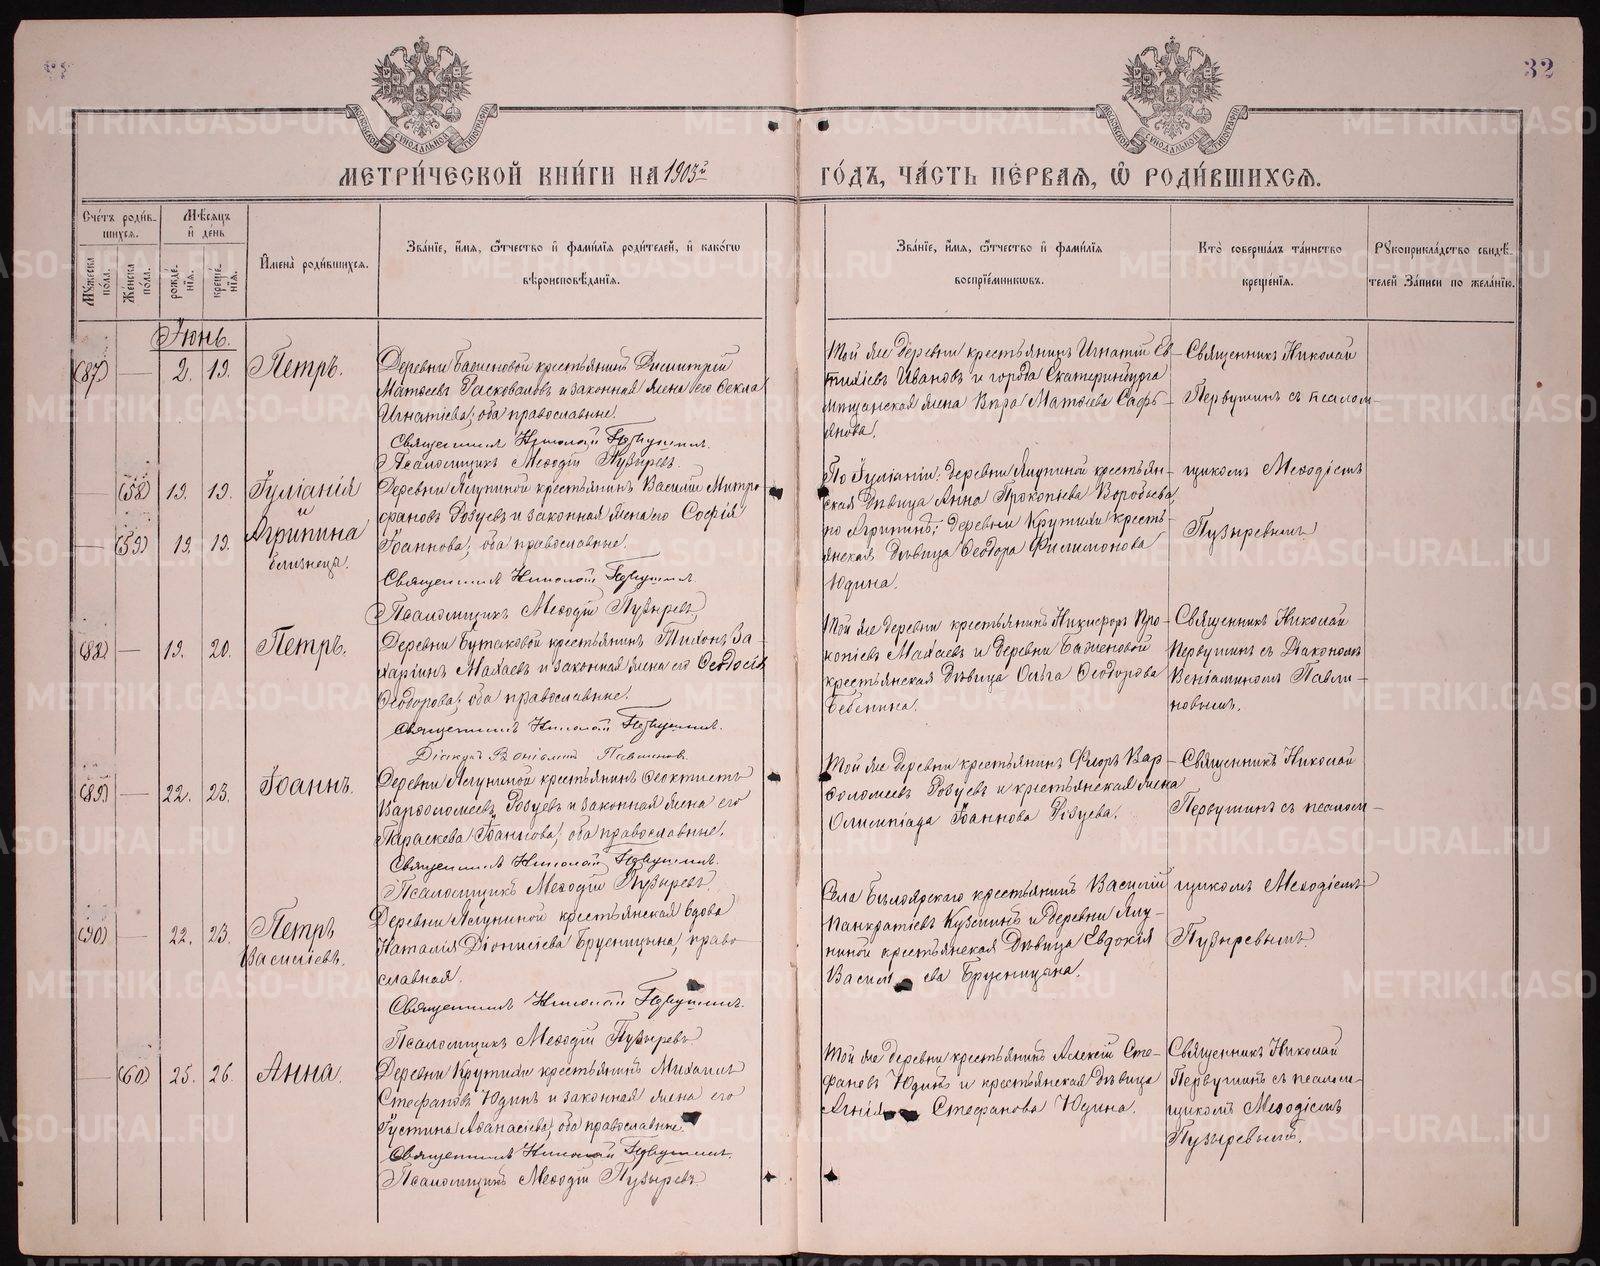 32
МОСКОВСКОЙ СѴНОДАЛЬНОЙ ТИПОГРАФІИ
МОСКОВСКОЙ СѴНОДАЛЬНОЙ ТИПОГРАФІИ
МЕТРИ́ЧЕСКОЙ КНИ́ГИ НА 1903й ГО́ДЪ, ЧА́СТЬ ПЕ́РВАЯ, Ѡ РОДИ́ВШИХСЯ.
Сче́тъ роди́в-
шихся.
Мꙋ́жеска по́ла.
Же́нска по́ла.
Мѣ́сяцъ и де́нь
рожде́-
нія.
креще́-
нія.
Имена̀ роди́вшихся.
Зва́ніе, и́мя, ѻ҆́тчество и҆ фами́лія роди́телей, и҆ како́гѡ
вѣроисповѣ́данія.
Зва́ніе, и́мя, ѻ҆́тчество и҆ фами́лія
воспріе́мниковъ.
Кто̀ соверша́лъ та́инство
креще́нія.
Рꙋкоприкла́дство свидѣ́-
телей за́писи по жела́нію.
Іюнь.
(87) — 2. 19. Петръ.
Деревни Баженовой крестьянинъ Димитрій
Матѳеевъ Расковаловъ и законная жена его Ѳекла
Игнатіева; оба православные.
Священникъ Николай Первушинъ.
Псаломщикъ Меѳодій Пузыревъ.
Той же деревни крестьянинъ Игнатій Ев-
тихіевъ Ивановъ и города Екатеринбурга
мѣщанская жена Вѣра Матѳіева Сафь-
янова.
Священникъ Николай
Первушинъ съ псалом-
щикомъ Меѳодіемъ
Пузыревымъ.
— (58) 19. 19. Іуліанія
и
— (59) 19. 19. Агрипина
близнецы.
Деревни Ялуниной крестьянинъ Василій Митро-
фановъ Розуевъ и законная жена его Софія
Іоаннова; оба православные.
Священникъ Николай Первушинъ.
Псаломщикъ Меѳодій Пузыревъ.
По Іуліаніи: деревни Ялуниной крестьян-
ская дѣвица Анна Прокопіева Воробьева,
по Агрипинѣ: деревни Крутихи кресть-
янская дѣвица Ѳеодора Филимонова
Юдина.
(88) — 19. 20. Петръ.
Деревни Бутаковой крестьянинъ Тихонъ За-
харіинъ Махаевъ и законная жена его Ѳеодосія
Ѳеодорова; оба православные.
Священникъ Николай Первушинъ.
Діаконъ Веніаминъ Павлиновъ.
Той же деревни крестьянинъ Никифоръ Про-
копіевъ Махаевъ и деревни Баженовой
крестьянская дѣвица Ольга Ѳеодорова
Бебенина.
Священникъ Николай
Первушинъ съ діакономъ
Веніаминомъ Павли-
новымъ.
(89) — 22. 23. Іоаннъ.
Деревни Ялуниной крестьянинъ Ѳеоктистъ
Варѳоломеевъ Розуевъ и законная жена его
Параскева Іоаннова; оба православные.
Священникъ Николай Первушинъ.
Псаломщикъ Меѳодій Пузыревъ.
Той же деревни крестьянинъ Флоръ Вар-
ѳоломеевъ Розуевъ и крестьянская жена
Олимпіада Іоаннова Розуева.
Священникъ Николай
Первушинъ съ псалом-
щикомъ Меѳодіемъ
Пузыревымъ.
(90) — 22. 23. Петръ
Василіевъ.
Деревни Ялуниной крестьянская вдова
Наталія Діонисіева Брусницына, право-
славная.
Священникъ Николай Первушинъ.
Псаломщикъ Меѳодій Пузыревъ
Села Бѣлоярскаго крестьянинъ Василій
Панкратіевъ Кузминъ и деревни Ялу-
ниной крестьянская дѣвица Евдокія
Васильева Брусницына.
— (60) 25. 26. Анна.
Деревни Крутихи крестьянинъ Михаилъ
Стефановъ Юдинъ и законная жена его
Іустина Аѳанасіева; оба православные.
Священникъ Николай Первушинъ.
Псаломщикъ Меѳодій Пузыревъ.
Той же деревни крестьянинъ Алексій Сте-
фановъ Юдинъ и крестьянская дѣвица
Агнія Стефанова Юдина.
Священникъ Николай
Первушинъ съ псалом-
щикомъ Меѳодіемъ
Пузыревымъ.
METRIKI.GASO-URAL.RU